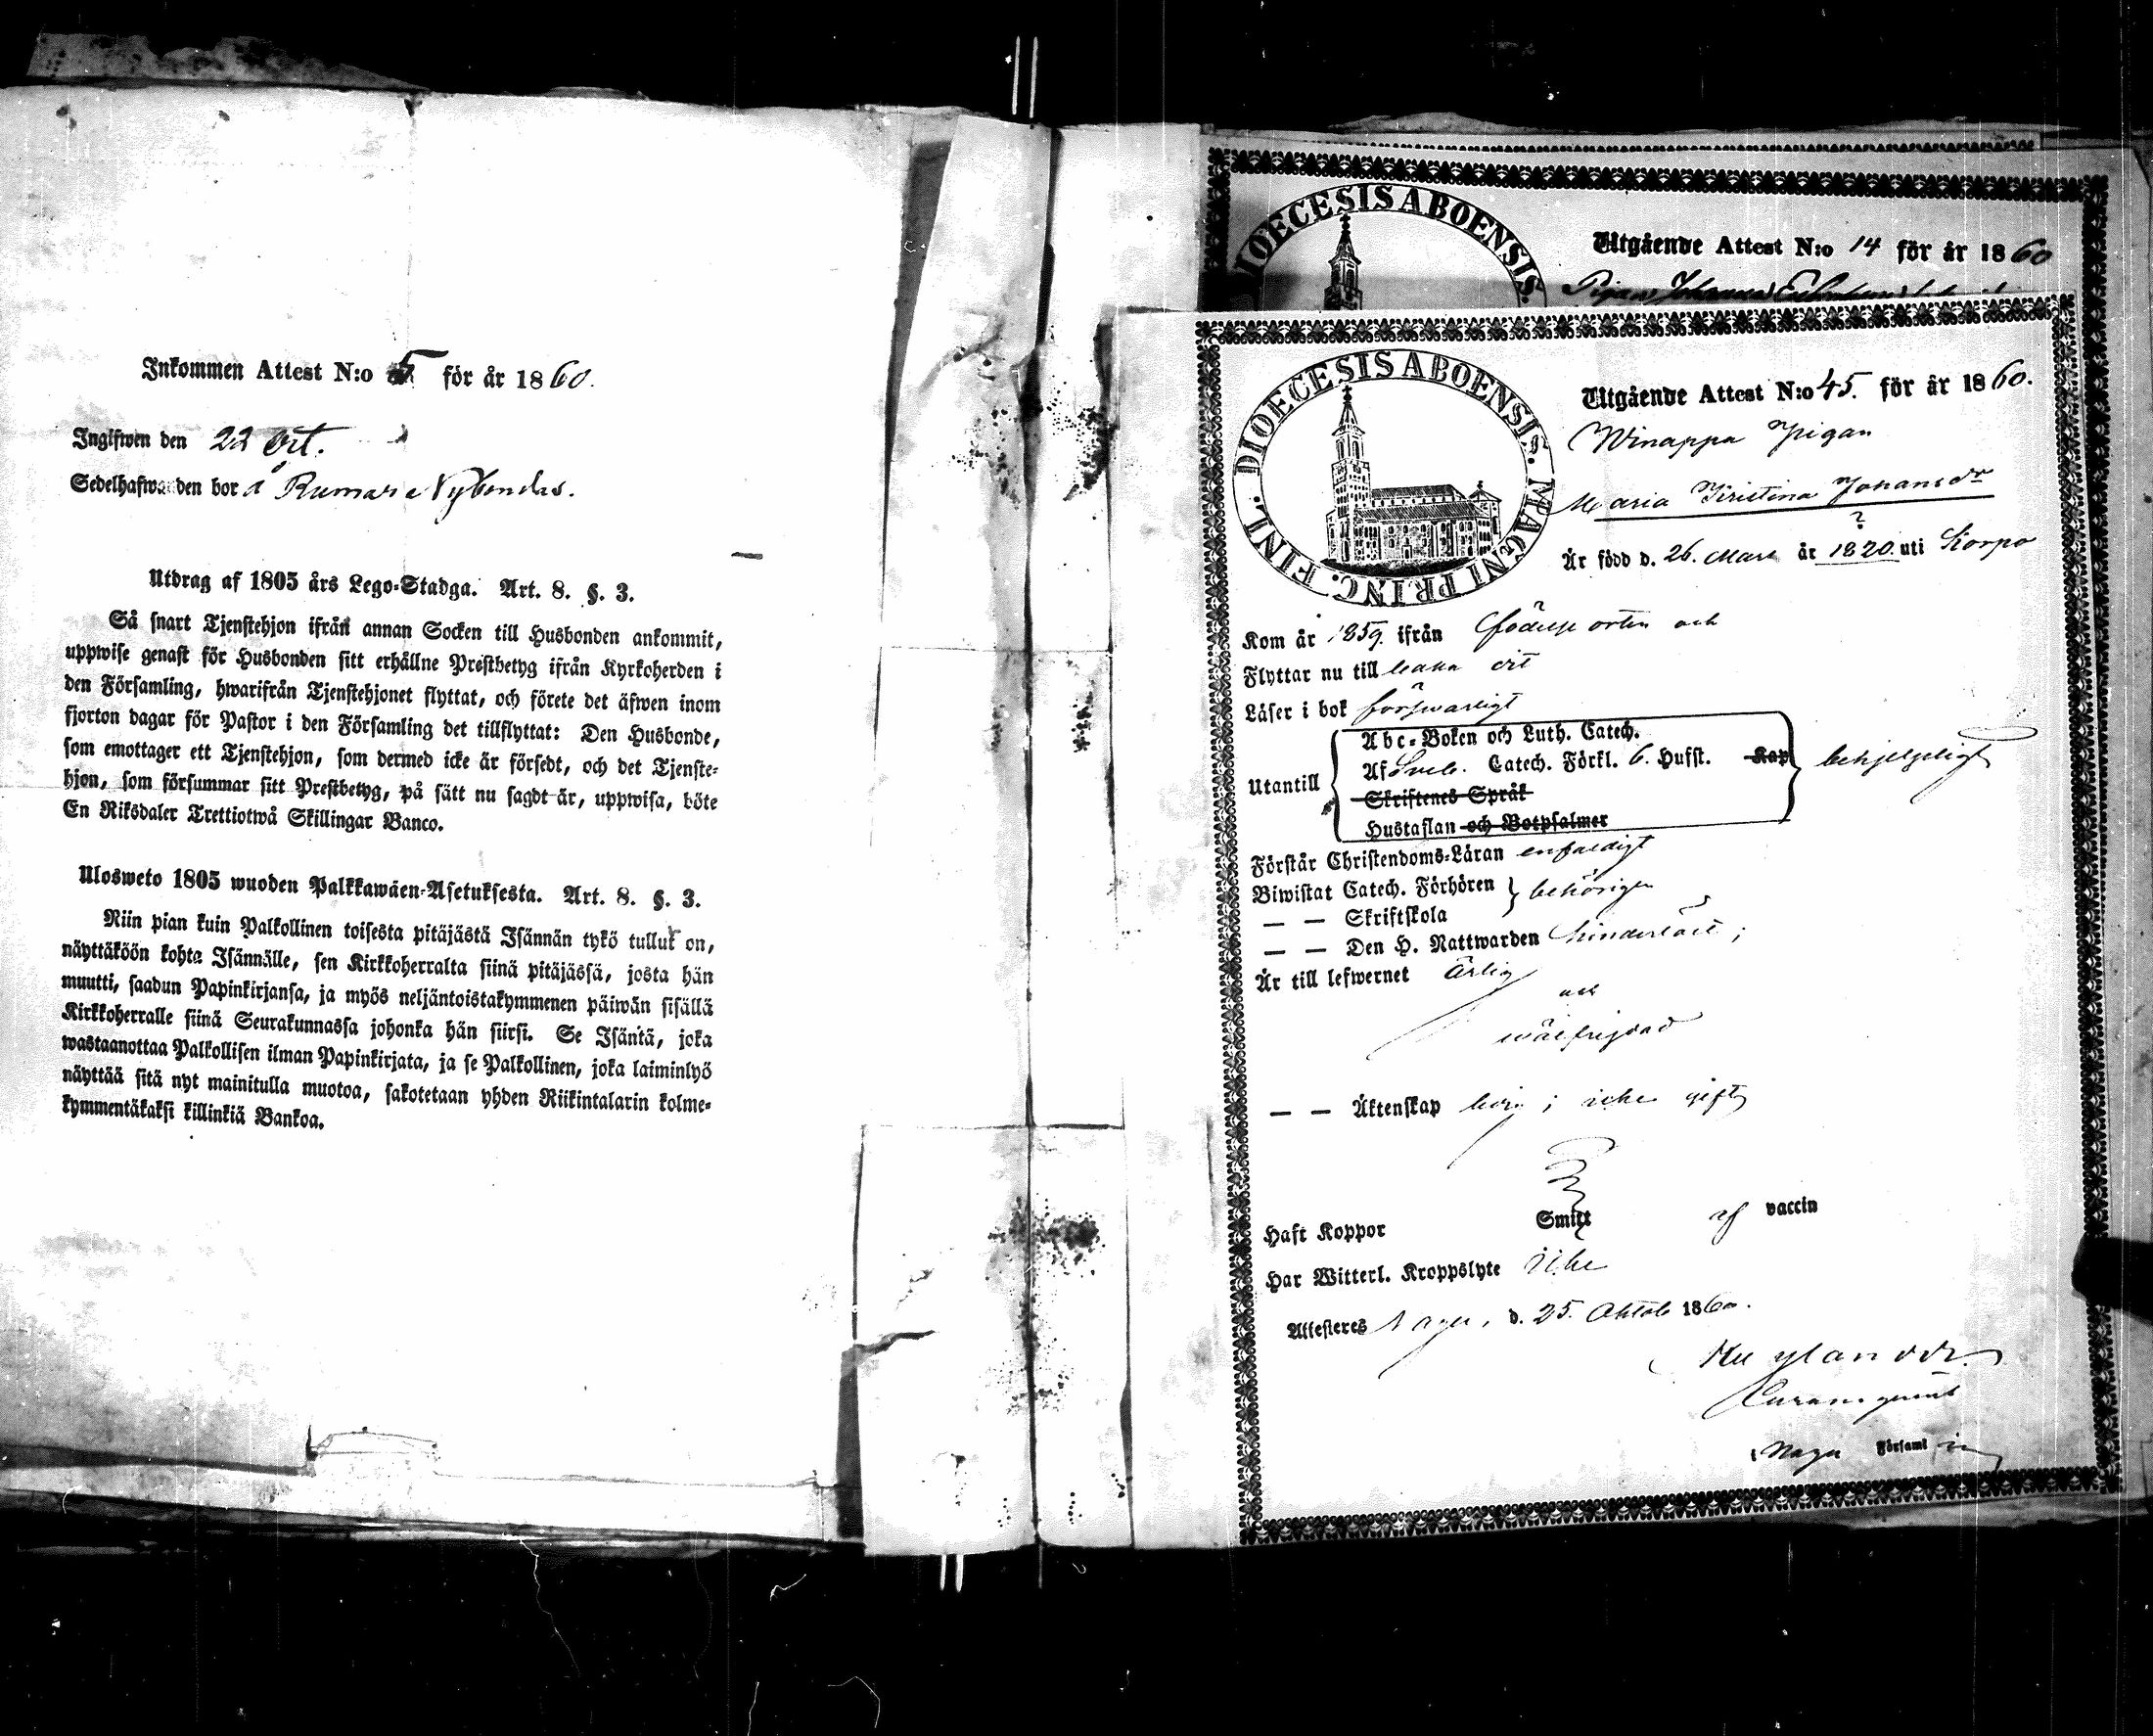 Inkommen Attest N:o 5 för år 1860.
Ingifwen den 22 Oct.
Sedelhafwanden bor å Rumar Nybondas.
Utdrag af 1805 års Lego-Stadga. Art. 8. §. 3.
Så snart Tjenstehjon ifrån annan Socken till Husbonden ankommit,
uppwise genast för Husbonden sitt erhållne Prestbetyg ifrån Kyrkoherden i
den Församling, hwarifrån Tjenstehjonet flyttat, och förete det äfwen inom
fjorton dagar för Pastor i den Församling det tillflyttat: Den Husbonde,
som emottager ett Tjenstehjon, som dermed icke är försedt, och det Tjenste-
hjon, som försummar sitt Prestbetyg, på sätt nu sagdt är, uppwisa, böte
En Riksdaler Trettiotwå Skillingar Banco.
Ulosweto 1805 wuoden Palkkawäen-Asetuksesta. Art. 8. §. 3.
Niin pian kuin Palkollinen toisesta pitäjästä Isännän tykö tullut on,
näyttäköön kohta Isännälle, sen Kirkkoherralta siinä pitäjässä, josta hän
muutti, saadun Papinkirjansa, ja myös neljäntoistakymmenen päiwän sisällä
Kirkkoherralle siinä Seurakunnassa johonka hän siirsi. Se Isäntä, joka
wastaanottaa Palkollisen ilman Papinkirjata, ja se Palkollinen, joka laiminlyö
näyttää sitä nyt mainitulla muotoa, sakotetaan yhden Riikintalarin kolme-
kymmentäkaksi killinkiä Bankoa.
DIOECESIS ABOENSIS.
Utgående Attest N:o 14 för år 1860
Pigan Johanna
DIOECESIS ABOENSIS. MAGNI PRINC. FINL.
Utgående Attest N:o 45. för år 1860.
Winappa pigan
Maria Kristina Johansdr
?
Är född d. 26. Mars år 1820. uti Korpo
Kom år 1859. ifrån födelse orten och
Flyttar nu till samma ort
Läser i bok förswarligt
Abc-Boken och Luth. Catech.
Utantill Af Sveb. Catech. Förkl. 6. Hufst. Kap behjelpeligt
Skriftenes Språk
Hustaflan och Botpsalmer
Förstår Christendoms-Läran enfaldigt
Biwistat Catech. Förhören } behörigen
— — Skriftskola
— — Den H. Nattwarden hindersløst;
Är till lefwernet ärlig
och
wälfrejdad
— — Äktenskap ledig; icke gift
Haft Koppor Smitt af vaccin
Har Witterl. Kroppslyte icke
Attesteras Nagu, d. 25. Oktob 1860.
Församl